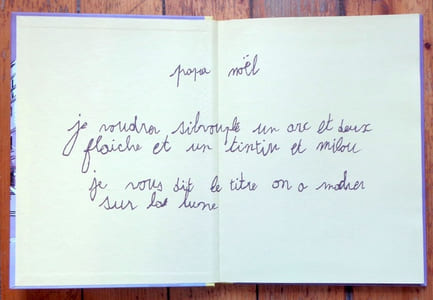 papa noël
je voudrer silvouplé un arc et deux
flaiche et un tintin et milou
je vous dit le titre on a marcher
sur la lune